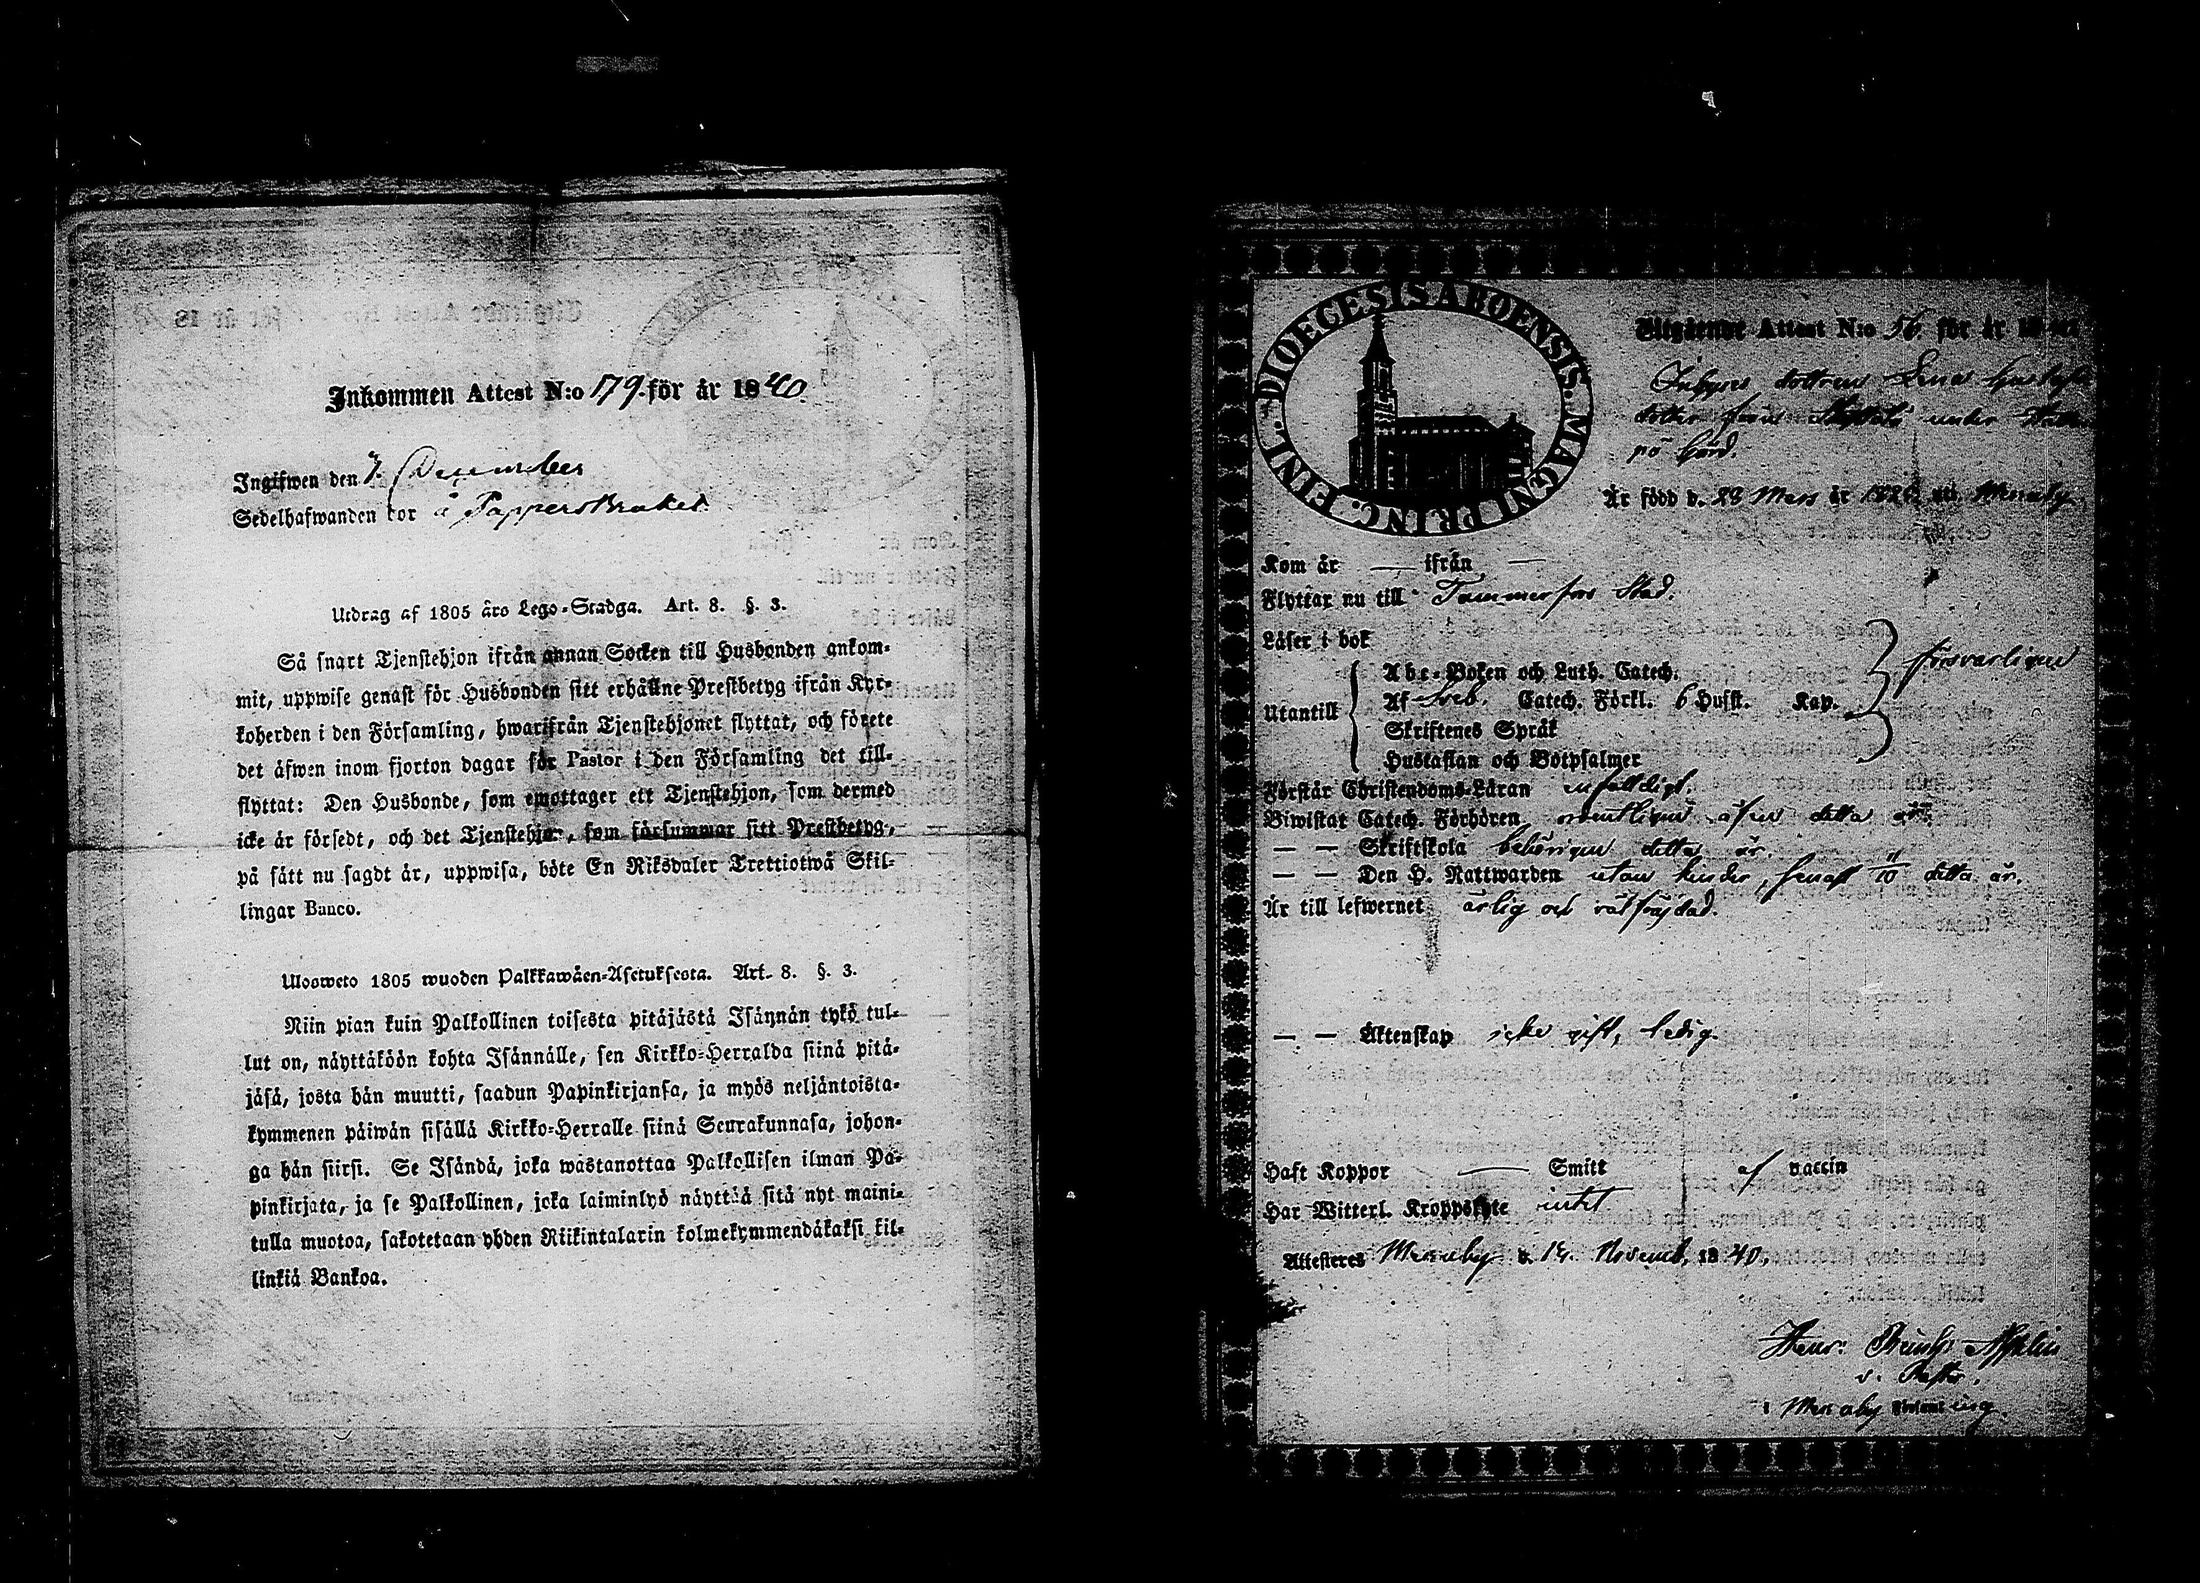 Inkommen Attest N:o 179. för år 1840.
Ingifwen den 7. December
Sedelhafwanden bor å Pappersbruket.
Utdrag af 1805 års Lego-Stadga. Art. 8. §. 3.
Så snart Tjenstehjon ifrån annan Socken till Husbonden ankom-
mit, uppwise genast för Husbonden sitt erhållne Prestbetyg ifrån Kyr-
koherden i den Församling, hwarifrån Tjenstehjonet flyttat, och förete
det äfwen inom fjorton dagar för Pastor i den Församling det till-
flyttat: Den Husbonde, som emottager ett Tjenstehjon, som dermed
icke är försedt, och det Tjenstehjon, som försummar sitt Prestbetyg,
på sätt nu sagdt är, uppwisa, böte En Riksdaler Trettiotwå Skil-
lingar Banco.
Ulosweto 1805 wuoden Palkkawäen-Asetuksesta. Art. 8. §. 3.
Niin pian kuin Palkollinen toisesta pitäjästä Isännän tykö tul-
lut on, näyttäköön kohta Isännälle, sen Kirkko-Herralda siinä pitä-
jäsä, josta hän muutti, saadun Papinkirjansa, ja myös neljäntoista-
kymmenen päiwän sisällä Kirkko-Herralle siinä Seurakunnasa, johon-
ga hän siirsi. Se Isändä, joka wastanottaa Palkollisen ilman Pa-
pinkirjata, ja se Palkollinen, joka laiminlyö näyttää sitä nyt maini-
tulla muotoa, sakotetaan yhden Riikintalarin kolmekymmendäkaksi kil-
linkiä Bankoa.
DIOECESIS ABOENSIS. MAGNI PRINC. FINL.
Utgående Attest N:o 56 för år 1840
Inhyses dottren Lena Gustafs
dotter från under
gård.
Är född d. 28 Mars år
Kom år — ifrån —
Flyttar nu till Tammerfors Stad.
Läser i bok
Abc-Boken och Luth. Catech. försvarligen
Utantill Af Sveb. Catech. Förkl. 6 Hufst. Kap.
Skriftenes Språk
Hustaflan och Botpsalmer
Förstår Christendoms-Läran enfaldigt.
Biwistat Catech. Förhören ordentligen äfven detta år.
— — Skriftskola behörigen detta år.
— — Den H. Nattwarden utan hinder, senast detta år.
Är till lefwernet ärlig och rätfräjdad.
— — Äktenskap icke gift, ledig.
Haft Koppor — Smitt af vaccin
Har Witterl. Kroppslyte intet
Attesteres Messuby d. 14. Novemb. 1840.
Henr:
v. Pastor.
i Messuby Församl ing.